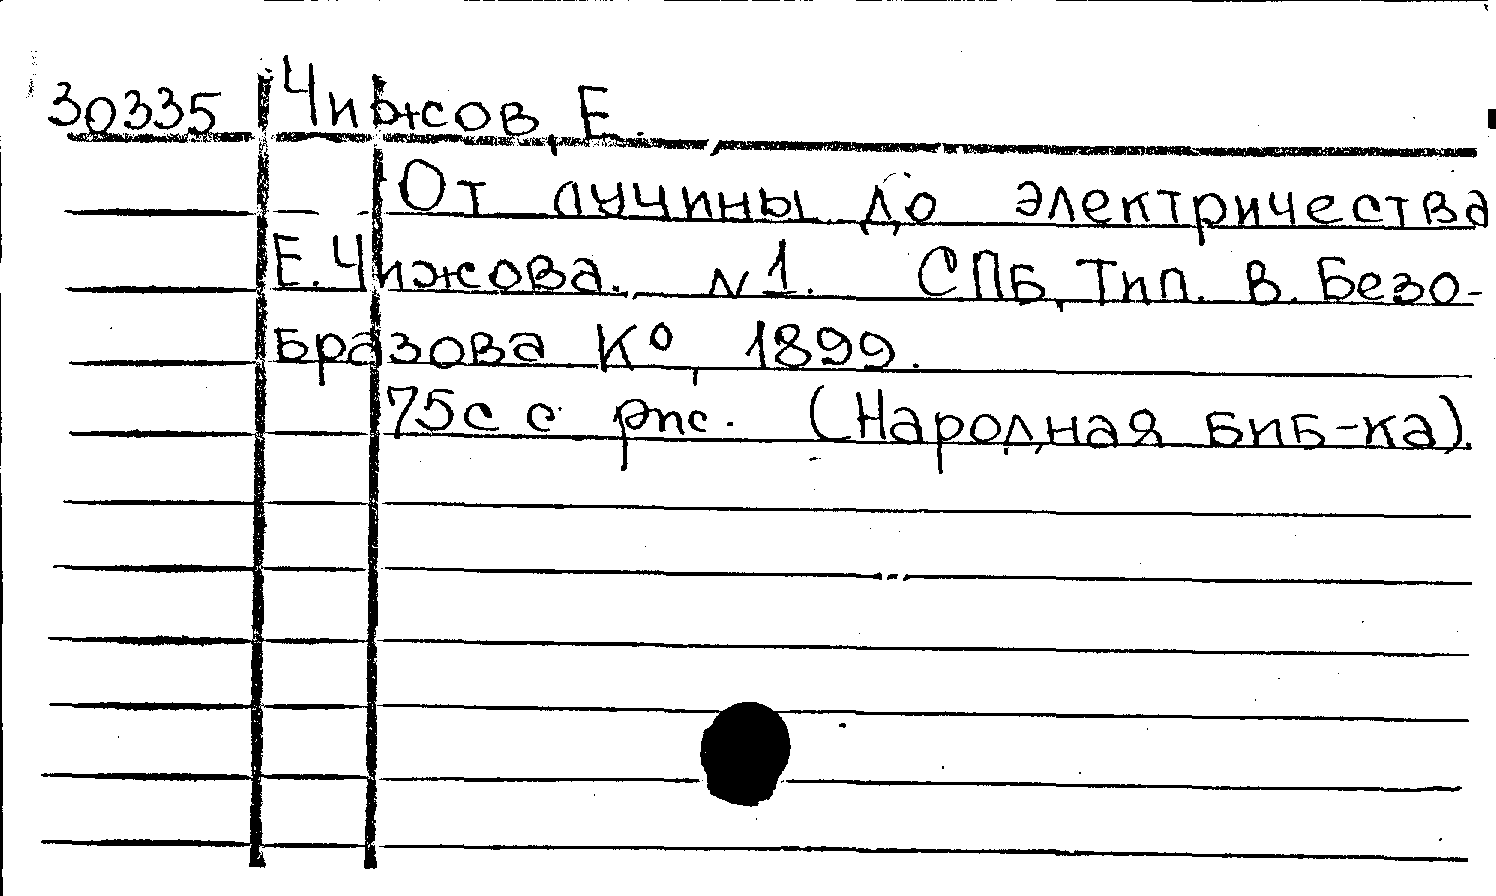 30335 Чижов, Е.
От лучины до электричества
Е. Чижова. N 1. СПБ, Тип. В. Безо-
бразова К°, 1899.
75с с рпс. (Народная биб-ка).